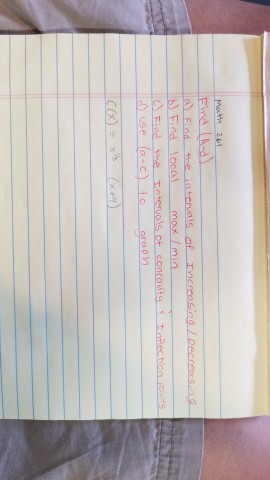 Math 261
Find (A-d)
a) Find the intervals of Increasing/Decreasing
b) Find local max/min
c) Find the Intervals of concavity & Inflection points
d) use (a-c) to graph
C(x) = x⅓ (x+4)